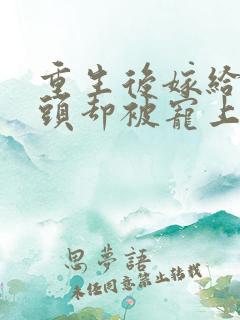 重生後嫁給
頭却被寵上
思夢語
未经同意禁止转载